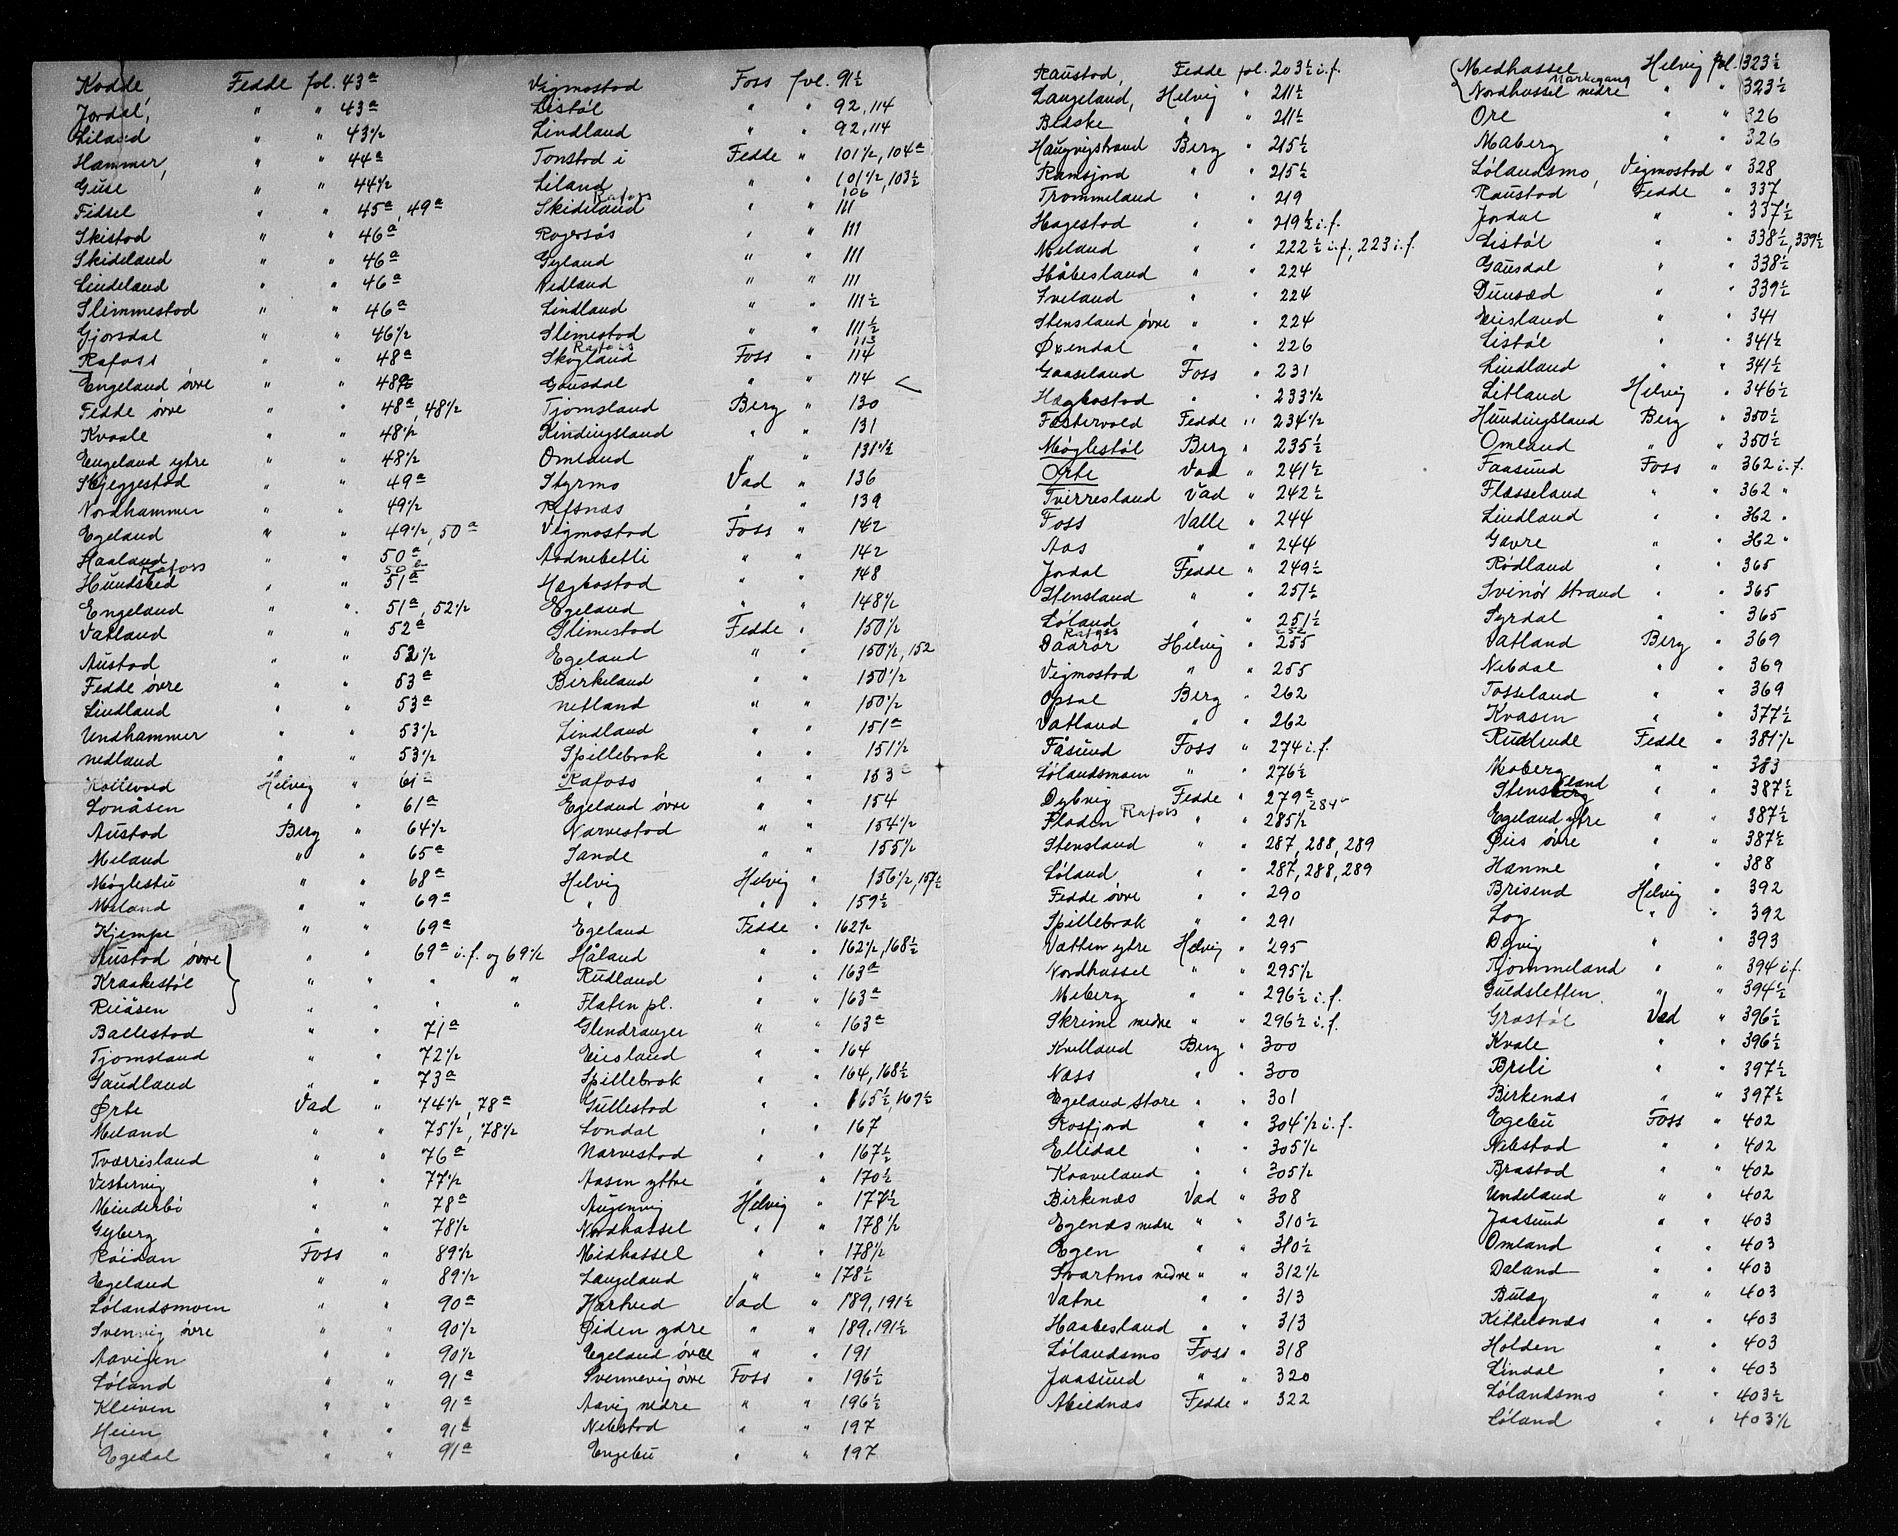 Kodde Fedde fol. 43a
Jordal, " " 43a
Liland " " 43½
Hammer, " " 44a
Guse " " 44½
Fidsel " " 45a, 49a
Skistad " " 46a
Skideland " " 46a
Lindeland " " 46a
Slimmestad " " 46a
Gjorsdal " " 46½
Rafoss " " 48a
Engeland øvre " " 48a
Fedde øvre " " 48a, 48½
Kvaale " " 48½
Engeland ytre " " 48½
Skjeggestad " " 49a
Nordhammer " " 49½
Egeland " " 49½, 50a
Haaland " " 50a
Rafoss 50a
Hundsked " " 51a
Engeland " " 51a, 52½
Vatland " " 52a
Austad " " 52½
Fedde øvre " " 53a
Lindland " " 53a
Undhammer " " 53½
nedland " " 53½
Kollevold Helvig " 61a
Lonåsen " " 61a
Austad Berg " 64½
Meland " " 65a
Møglestu " " 68a
Meland " " 69a
Kjempe " " 69a
Austad øvre " " 69a i.f. og 69½
Kraakestøl " " " "
Riiåsen " " " "
Ballestad " " 71a
Tjomsland " " 72½
Saudland " " 73a
Ørte Vad " 74½, 78a
Meland " " 75½, 78½
Tværrisland " " 76a
Vestervig " " 77½
Minderbø " " 78a
Gyberg " " 78½
Røidan Foss " 89½
Egeland " " 89½
Lølandsmoen " " 90a
Svennvig øvre " " 90½
Aavigen " " 90½
Løland " " 91a
Kleiven " " 91a
Heien " " 91a
Egedal " " 91a
Vigmostad Foss fol. 91½
Listøl " " 92, 114
Lindland " " 92, 114
Tonstad i Fedde " 101½, 104a
Liland " " 101½, 103½
Rafoss 106
Skideland " " 111
Rogersås " " 111
Gyland " " 111
Nedland " " 111
Lindland " " 111½
Slimestad " " 111½
Rafoss 113
Skogland Foss " 114
Gausdal " " 114
Tjomsland Berg " 130
Kindingsland " " 131
Omland " " 131½
Styrmo Vad " 136
Refsnæs " " 139
Vigmostad Foss " 142
Aadneketti " " 142
Hægkostad " " 148
Egeland " " 148½
Slimestad Fedde " 150½
Egeland " " 150½, 152
Birkeland " " 150½
netland " " 150½
Lindland " " 151a
Spillebrok " " 151½
Rafoss " " 153a
Egeland øvre " " 154
Narvestad " " 154½
Sande " " 155½
Helvig Helvig " 156½, 157½
" " " 159½
Egeland Fedde " 162½
Håland " " 162½, 168½
Rudland " " 163a
Flaten pl. " " 163a
Glendranger " " 163a
Eiesland " " 164
Spillebrok " " 164, 168½
Gullestad " " 165½, 167½
Londal " " 167
Narvestad " " 167½
Aasen yttre " " 170½
Augenvig Helvig " 177½
Nordhassel " " 178½
Midhassel " " 178½
Langeland " " 178½
Harkved Vad " 189, 191½
Øiden ydre " " 189, 191½
Egeland øvre " " 191
Svennevig øvre Foss " 196½
Aavig nedre " " 196½
Nebstad " " 197
Engebu " " 197
Raustad, Fedde fol. 203½ i.f.
Langeland, Helvig " 211½
Bleske " " 211½
Haugvigstrand Berg " 215½
Ramsjord " " 215½
Trommeland " " 219
Hagestad " " 219½ i.f.
Meland " " 222½ i.f., 223 i.f.
Håbesland " " 224
Iveland " " 224
Stensland øvre " " 224
Øxendal " " 226
Gaaseland Foss " 231
Hægkostad " " 233½
Fæstervold Fedde " 234½
Møglestøl Berg " 235½
Ørte Vad " 241½
Tvirresland Vad " 242½
Foss Valle " 244
Aas " " 244
Jordal Fedde " 249½
Stensland " " 251½
Løland " " 251½
Rafoss 252
Daarør Helvig " 255
Vigmostad " " 255
Opsal Berg " 262
Vatland " " 262
Fåsund Foss " 274 i.f.
Lølandsmoen " " 276½
Dybvig Fedde " 279a
Rafoss 284a
Floden " " 285½
Stensland " " 287, 288, 289
Løland " " 287, 288, 289
Fedde øvre " " 290
Spillebrok " " 291
Vatten ytre Helvig " 295
Nordhassel " " 295½
Meberg " " 296½ i.f.
Skrime nedre " " 296½ i.f.
Kvelland Berg " 300
Næss " " 300
Egeland store " " 301
Rosfjord " " 304½ i.f.
Ellidal " " 305½
Kraaveland " " 305½
Birkenæs Vad " 308
Egenæs nedre " " 310½
Egen " " 310½
Svartmo nedre " " 312½
Vatne " " 313
Haabesland " " 313
Lølandsmo Foss " 318
Jaasund " " 320
Abildnæs Fedde " 322
Medhassel Helvig fol. 323½
Markegang
Nordhassel nedre " " 323½
Ore " " 326
Maberg " " 326
Lølandsmo, Vigmostad " 328
Raustad Fedde " 337
Jordal " " 337½
Listøl " " 338½, 339½
Gausdal " " 338½
Dunsæd " " 339½
Eiesland " " 341
Listøl " " 341½
Lindland " " 341½
Litland Helvig " 346½
Hundingsland Berg " 350½
Omland " " 350½
Faasund Foss " 362 i.f.
Flasseland " " 362 "
Lindland " " 362 "
Gavre " " 362 "
Rødland " " 365
Svinør Strand " " 365
Lyrdal " " 365
Vatland Berg " 369
Nebdal " " 369
Tosseland " " 369
Kvasen " " 377½
Rudlende Fedde " 381½
Moberg " " 383
Stensland " " 387½
Egeland ytre " " 387½
Øies øvre " " 387½
Hamme " " 388
Brisend Helvig " 392
Log " " 392
Dyvig " " 393
Tjommeland " " 394 i.f.
Guldsletten " " 394½
Grostøl Vad " 396½
Kvale " " 396½
Breli " " 397½
Birkenæs " " 397½
Egebu Foss " 402
Nebstad " " 402
Brastad " " 402
Undeland " " 402
Jaasund " " 403
Omland " " 403
Daland " " 403
Buløg " " 403
Kittelsnæs " " 403
Holden " " 403
Lindal " " 403
Lølandsmo " " 403½
Løland " " 403½